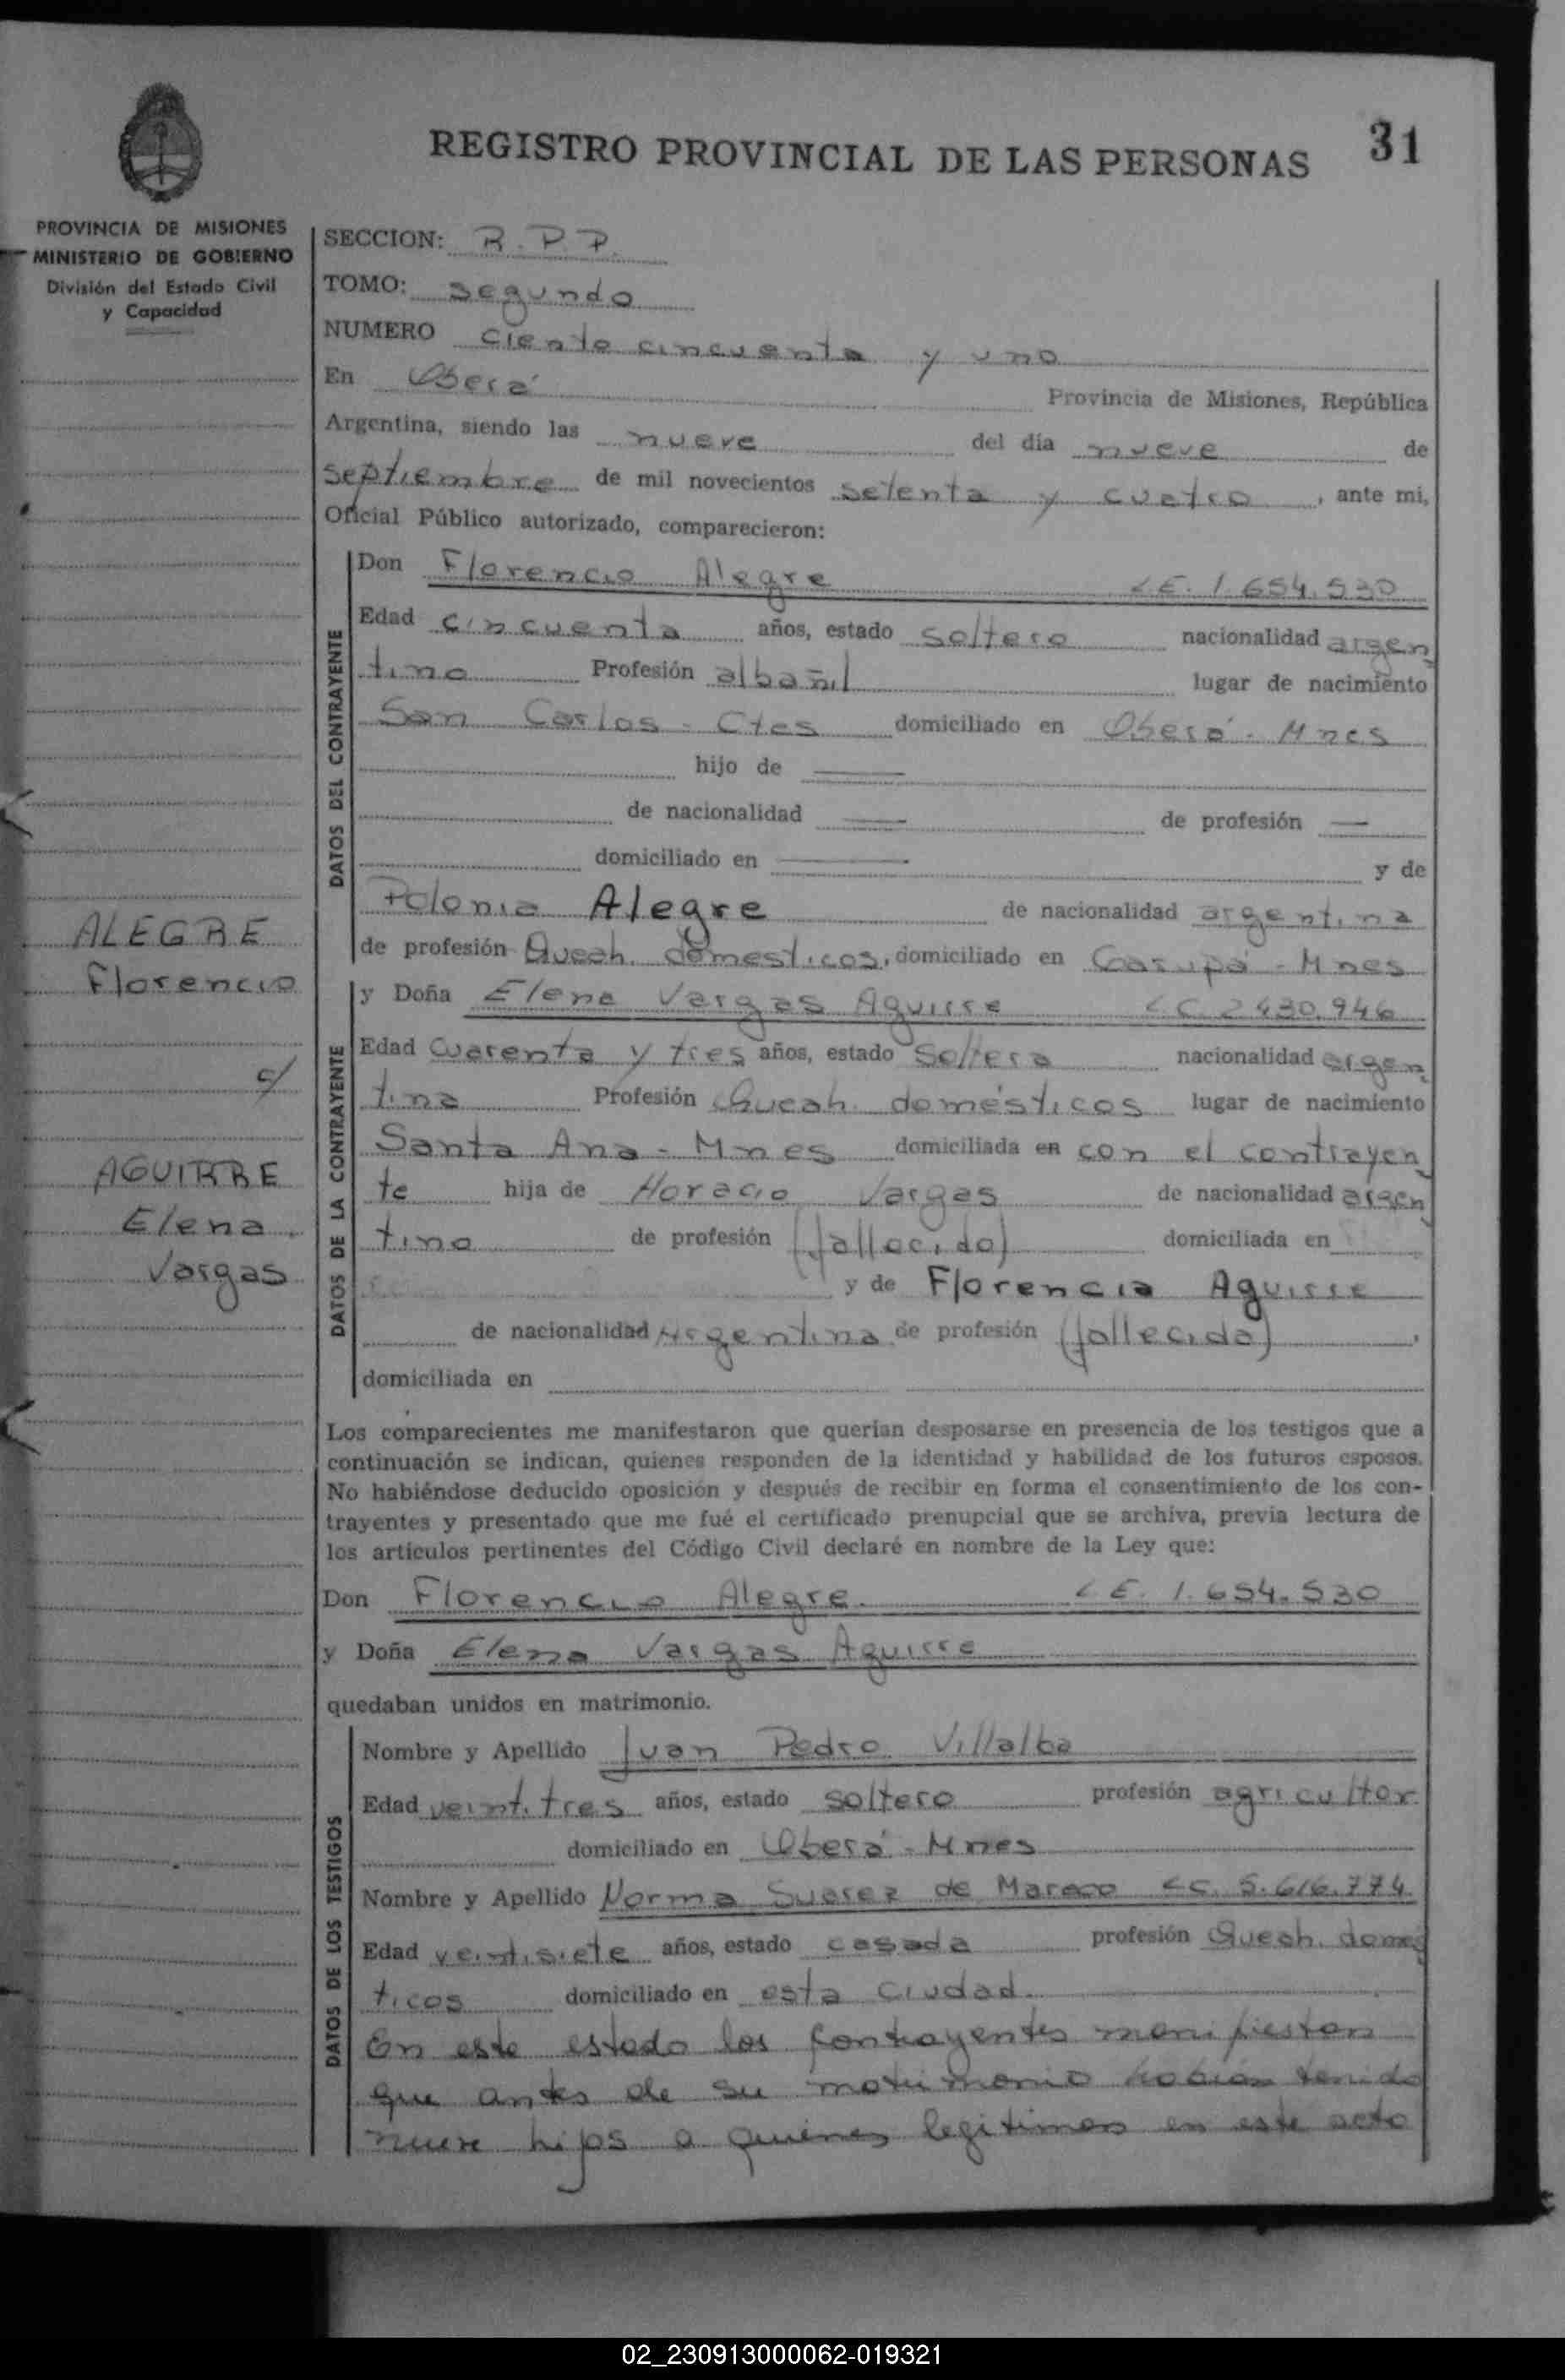 REGISTRO PROVINCIAL DE LAS PERSONAS 31
PROVINCIA DE MISIONES
MINISTERIO DE GOBIERNO
División del Estado Civil
y Capacidad
SECCION: R.P.P.
TOMO: segundo
NUMERO ciento cincuenta y uno
En Oberá Provincia de Misiones, República
Argentina, siendo las nueve del día nueve de
septiembre de mil novecientos setenta y cuatro, ante mi,
Oficial Público autorizado, comparecieron:
DATOS DEL CONTRAYENTE
Don Florencio Alegre L.E. 1.654.530
Edad cincuenta años, estado soltero nacionalidad argen
tino Profesión albañil lugar de nacimiento
San Carlos - Ctes domiciliado en Oberá - Mnes
hijo de ——
de nacionalidad —— de profesión —
domiciliado en —— y de
Polonia Alegre de nacionalidad argentina
de profesión Queah. domesticos, domiciliado en Garupá - Mnes
ALEGRE
Florencio
c/
AGUIRRE
Elena
Vargas
DATOS DE LA CONTRAYENTE
y Doña Elena Vargas Aguirre L C 2 430.946
Edad Cuarenta y tres años, estado Soltera nacionalidad argen
tina Profesión Queah. domésticos lugar de nacimiento
Santa Ana - Mnes domiciliada en con el contrayen
te hija de Horacio Vargas de nacionalidad argen
tino de profesión (fallecido) domiciliada en
y de Florencia Aguirre
de nacionalidad Argentina de profesión (fallecida),
domiciliada en
Los comparecientes me manifestaron que querían desposarse en presencia de los testigos que a
continuación se indican, quienes responden de la identidad y habilidad de los futuros esposos.
No habiéndose deducido oposición y después de recibir en forma el consentimiento de los con-
trayentes y presentado que me fué el certificado prenupcial que se archiva, previa lectura de
los artículos pertinentes del Código Civil declaré en nombre de la Ley que:
Don Florencio Alegre. L E. 1.654.530
y Doña Elena Vargas Aguirre
quedaban unidos en matrimonio.
DATOS DE LOS TESTIGOS
Nombre y Apellido Juan Pedro Villalba
Edad veintitres años, estado soltero profesión agricultor
domiciliado en Oberá - Mnes
Nombre y Apellido Norma Suarez de Mareco L C. 5.616.774
Edad veintisiete años, estado casada profesión Queah. domes
ticos domiciliado en esta ciudad.
En este estado los contrayentes manifiestan
que antes de su matrimonio habían tenido
nueve hijos a quienes legitiman en este acto
02_230913000062-019321